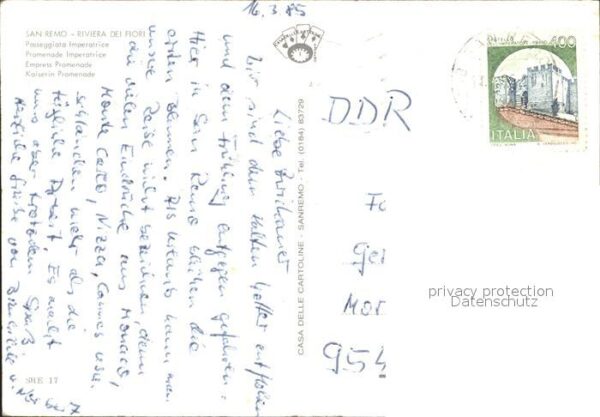 16.3.85
SAN REMO - RIVIERA DEI FIORI
Passeggiata Imperatrice
Promenade Imperatrice
Empress Promenade
Kaiserin Promenade
Liebe
wir sind dem kalten Wetter entflohen
und dem Frühling entgegen gefahren.
Hier in San Remo blühen die
ersten Blumen. Als Urlaub kann man
unsere Reise nicht bezeichnen, denn
die vielen Eindrücke aus Monaco,
Monte Carlo, Nizza, Cannes usw.
schlauchen mehr als die
tägliche Arbeit. Es macht
uns aber trotzdem Spaß.
Herzliche Grüße von
SRE 17
CASA DELLE CARTOLINE - SANREMO - Tel. (0184) 83729
DDR
954
400
ITALIA
privacy protection
Datenschutz